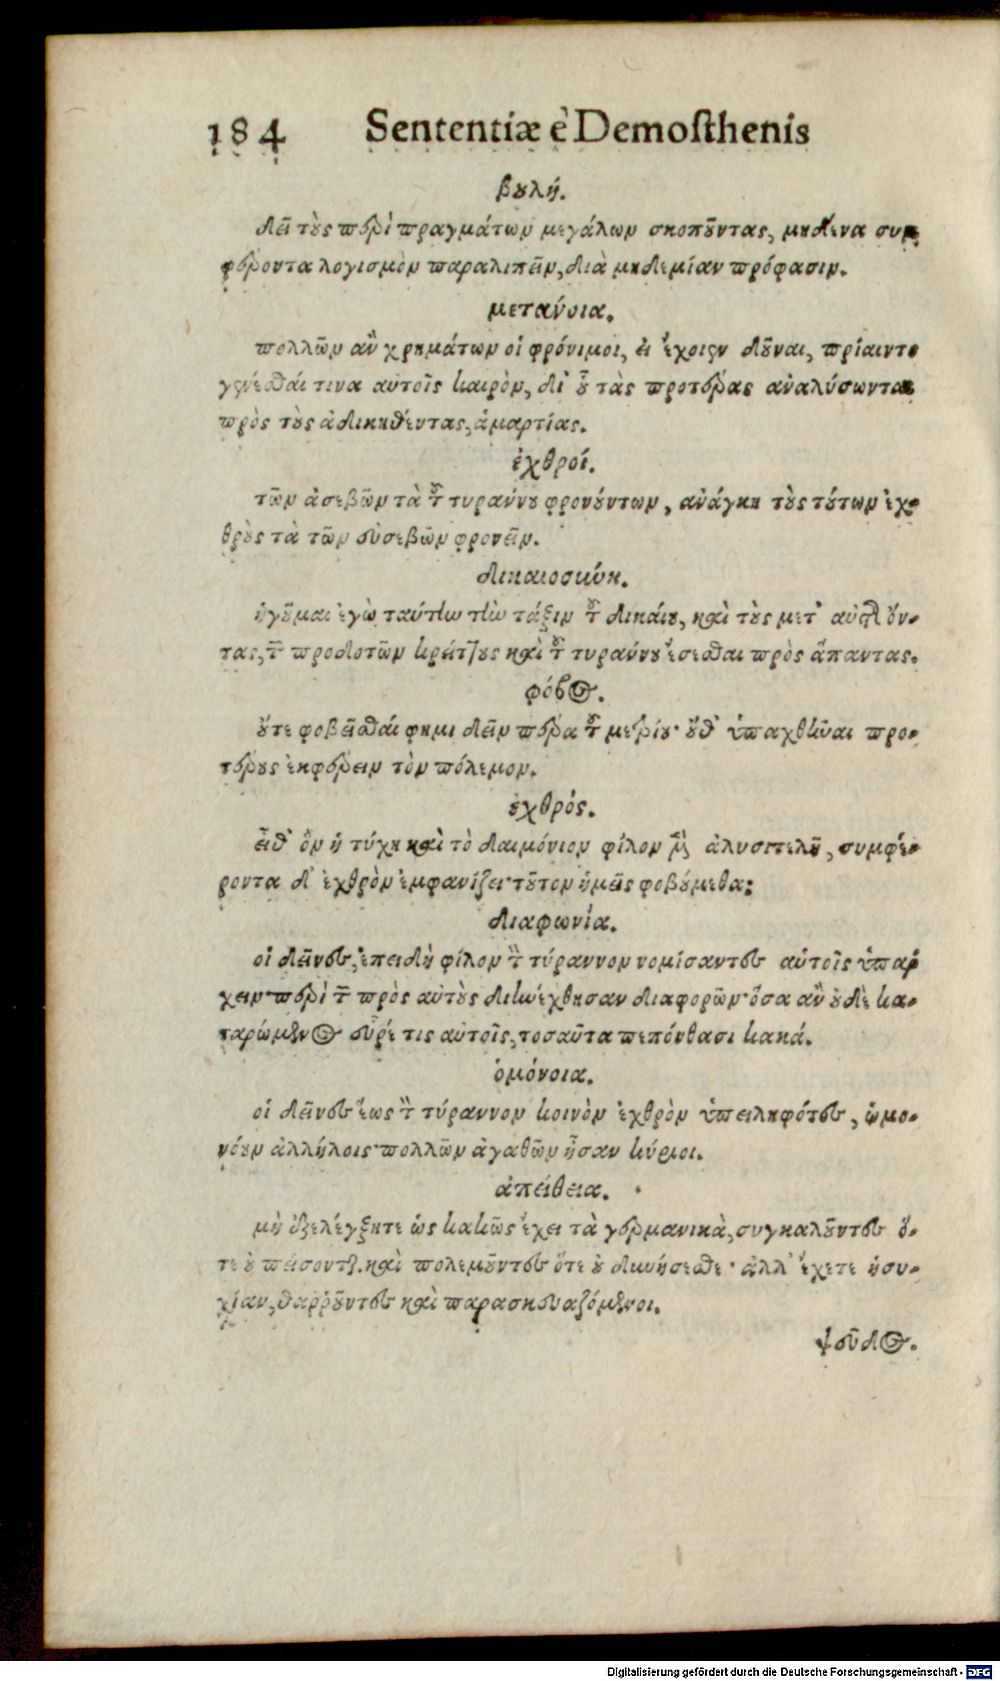 184 Sententiæ è Demoſthenis
βουλή.
δεῖ τοὺς περὶ πραγμάτων μεγάλων σκοποῦντας, μηδένα συμ
φέροντα λογισμὸν παραλιπεῖν, διὰ μηδεμίαν πρόφασιν.
μετάνοια.
πολλῶν ἂν χρημάτων οἱ φρόνιμοι, εἰ ἔχοιεν δοῦναι, πρίαιντο
γενέσθαι τινα αὐτοῖς καιρὸν, δι' οὗ τὰς προτέρας ἀναλύσονται
πρὸς τοὺς ἀδικηθέντας, ἁμαρτίας.
ἐχθροί.
τῶν ἀσεβῶν τὰ τοῦ τυράννου φρονούντων, ἀνάγκη τοὺς τούτων ἐχ-
θροὺς τὰ τῶν εὐσεβῶν φρονεῖν.
δικαιοσύνη.
ἡγοῦμαι ἐγὼ ταύτην τὴν τάξιν τοῦ δικαίου, καὶ τοὺς μετ' αὐτοῦ ὄν-
τας, τῶν προδοτῶν κρείττους καὶ τοῦ τυράννου ἔσεσθαι πρὸς ἅπαντας.
φόβος.
οὔτε φοβεῖσθαί φημι δεῖν πέρα τοῦ μετρίου· οὔθ' ὑπαχθῆναι προ-
τέρους ἐκφέρειν τὸν πόλεμον.
ἐχθρός.
εἶθ' ὃν ἡ τύχη καὶ τὸ δαιμόνιον φίλον μὲν ἀλυσιτελῆ, συμφέ-
ροντα δ' ἐχθρὸν ἐμφανίζει· τοῦτον ἡμεῖς φοβούμεθα;
διαφωνία.
οἱ δεῖνες, ἐπειδὴ φίλον τὸν τύραννον νομίσαντες αὐτοῖς ὑπάρ
χειν· περὶ τῶν πρὸς αὑτοὺς διηνέχθησαν διαφορῶν· ὅσα ἂν οὐδὲ κα-
ταρώμενος εὗρέ τις αὐτοῖς, τοσαῦτα πεπόνθασι κακά.
ὁμόνοια.
οἱ δεῖνες ἕως τὸν τύραννον κοινὸν ἐχθρὸν ὑπειληφότες, ὡμο-
νόουν ἀλλήλοις· πολλῶν ἀγαθῶν ἦσαν κύριοι.
ἀπείθεια.
μὴ ἐξελέγξητε ὡς κακῶς ἔχει τὰ γερμανικὰ, συγκαλοῦντες ὅ-
τε οὐ πείσοντ. καὶ πολεμοῦντες ὅτε οὐ δυνήσεσθε· ἀλλ' ἔχετε ἡσυ-
χίαν, θαρροῦντες καὶ παρασκευαζόμενοι.
ψεῦδος.
Digitalisierung gefördert durch die Deutsche Forschungsgemeinschaft - DFG